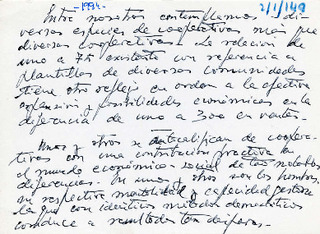 -1994-
2/1/149
Entre nosotros contemplamos di-
versas especies de cooperativas más que
diversas cooperativas. La relación de
uno a 75 existente con referencia a
plantillas de diversas comunidades
tiene otro reflejo en orden a la efectiva
expansión y posibilidades económicas en la
diferencia de uno a 300 en ventas.
Unos y otros se autocalifican de coopera-
tivas con una contribución práctica en
el mundo económico-social de tan notables
diferencias. En unos y otros son los hombres,
su respectiva mentalidad y capacidad gestora
la que con idénticos métodos democráticos
conduce a resultados tan dispares.